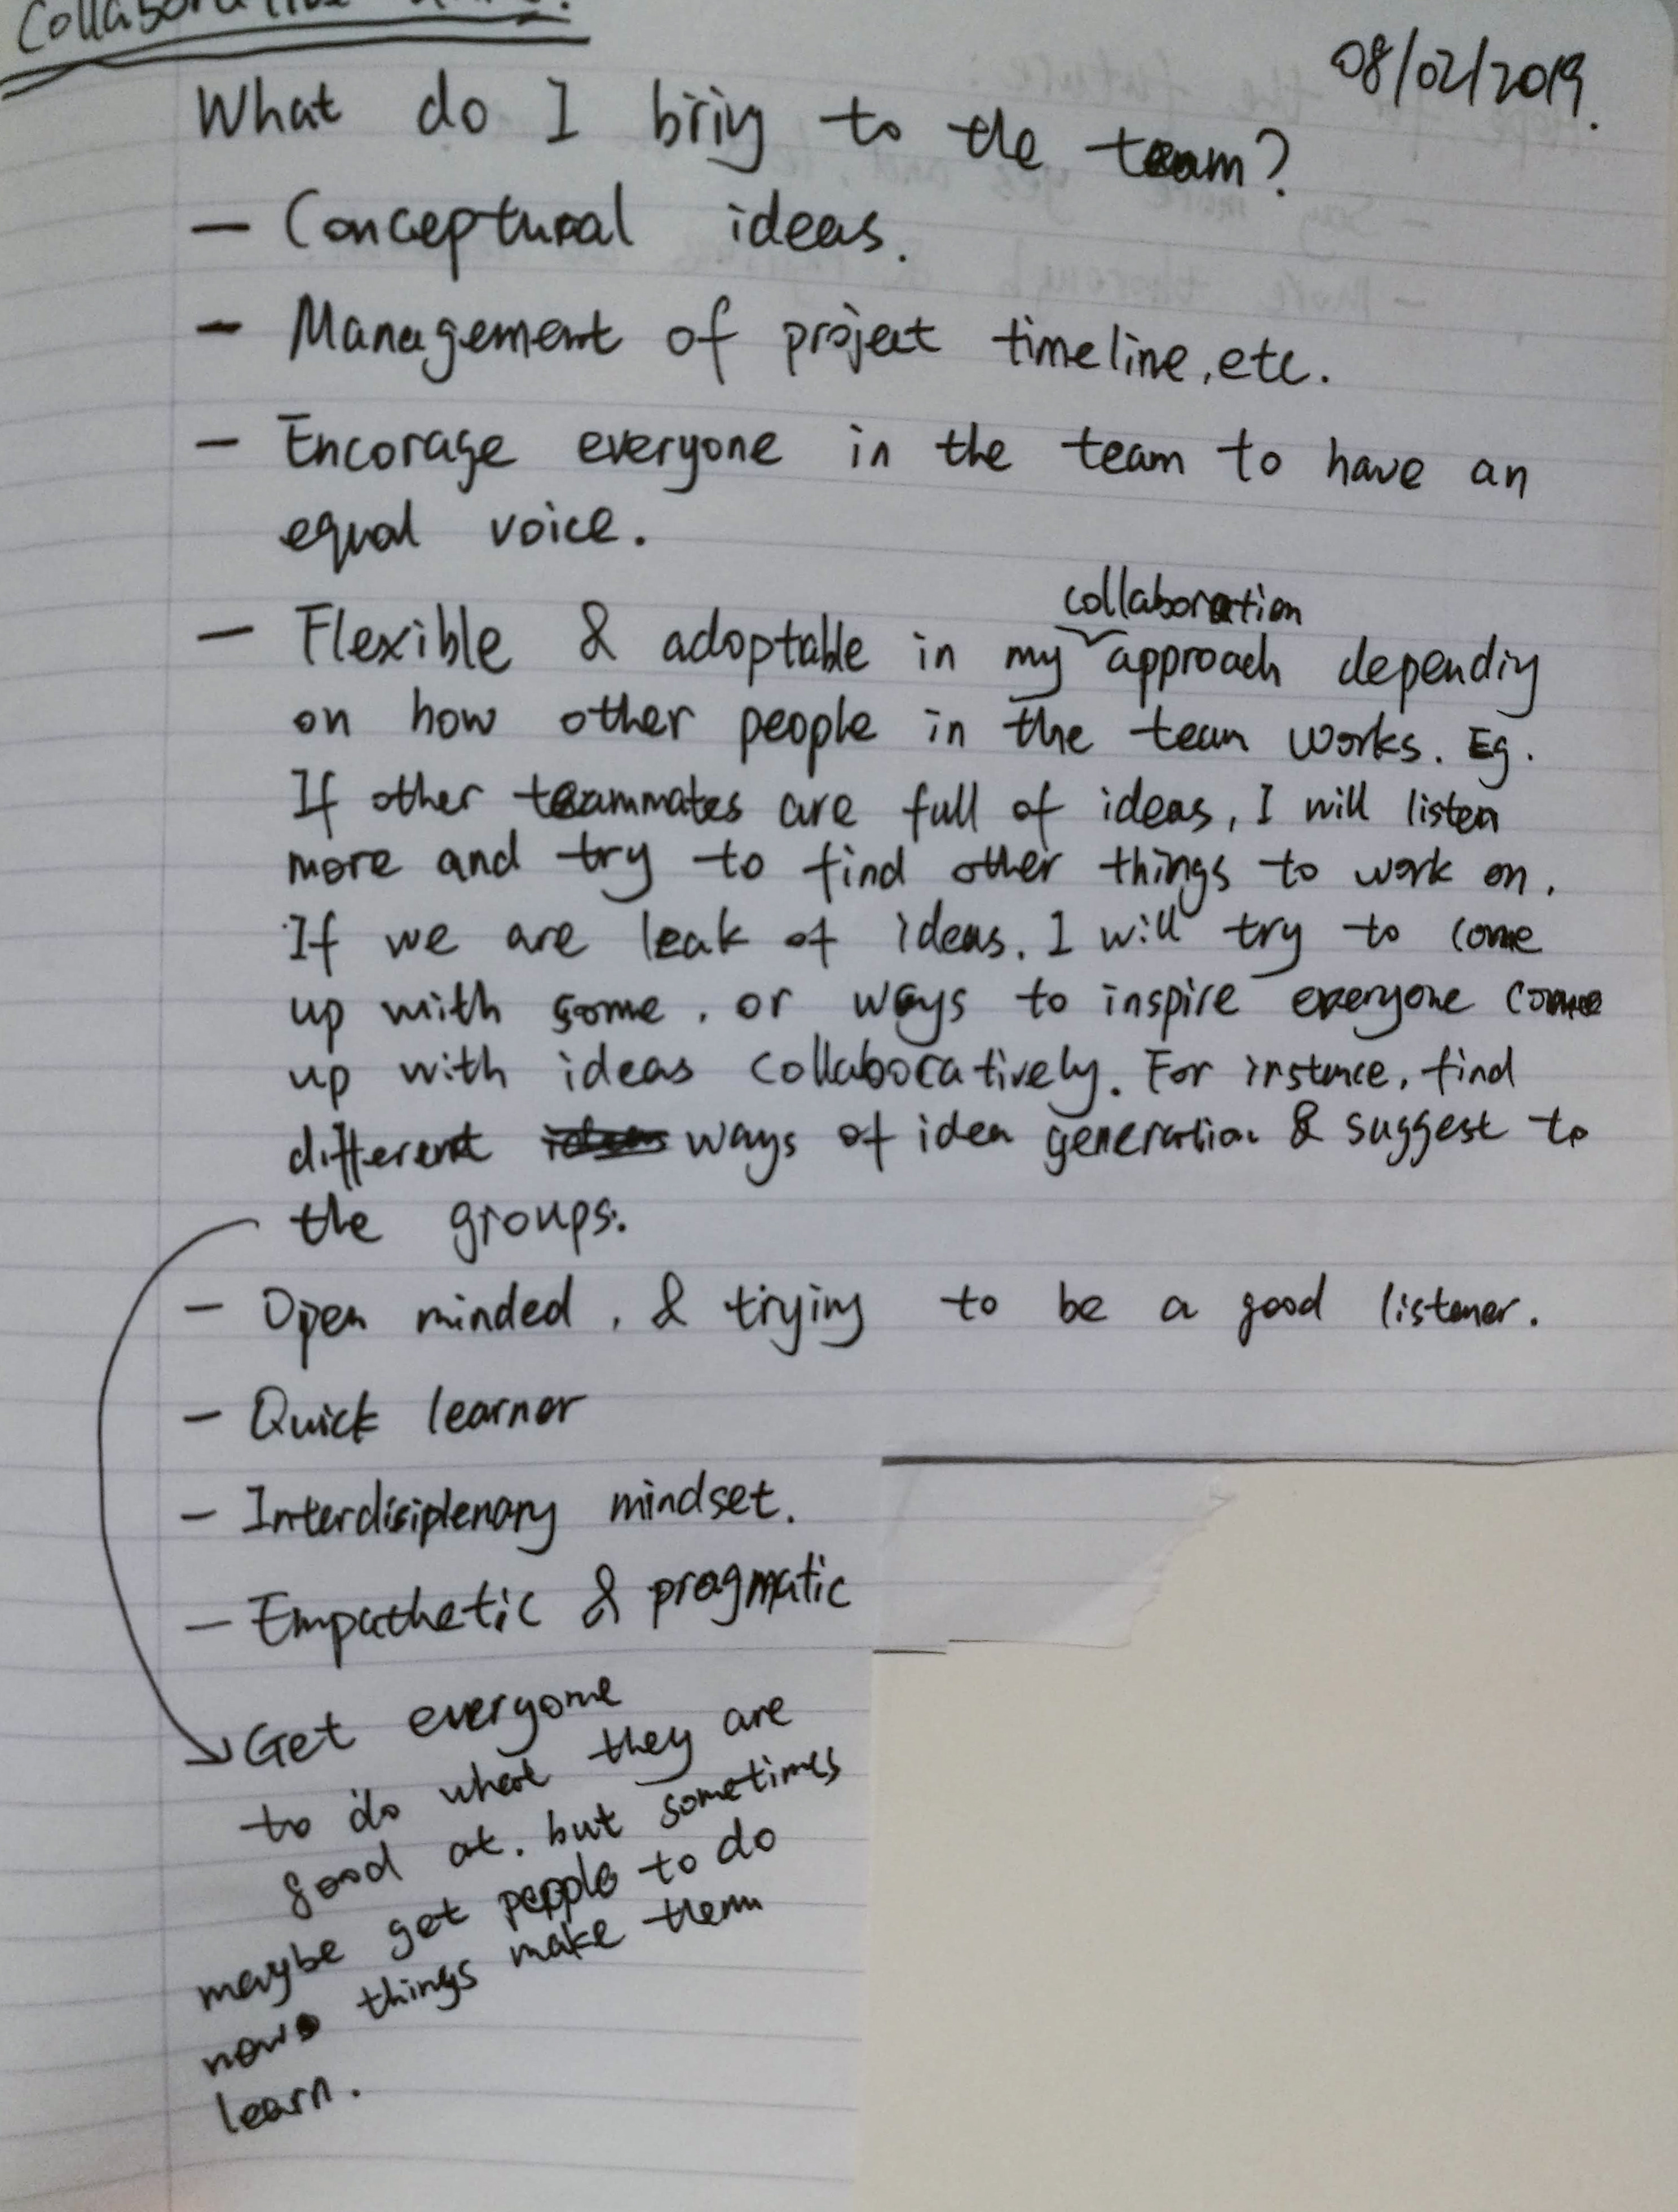 Collaborative
08/02/2019.
What do I bring to the team?
- Conceptural ideas.
- Management of project timeline, etc.
- Encorage everyone in the team to have an
equal voice.
collaboration
- Flexible & adoptable in my approach depending
on how other people in the team works. Eg.
If other teammates are full of ideas, I will listen
more and try to find other things to work on.
If we are leak of ideas. I will try to come
up with some. or ways to inspire everyone come
up with ideas collaboratively. For instance, find
different ways of idea generation & suggest to
the groups.
- Open minded, & trying to be a good listener.
- Quick learner
- Interdisiplenary mindset.
- Empathetic & pragmatic
Get everyone
to do what they are
good at. but sometimes
maybe get people to do
things make them
learn.